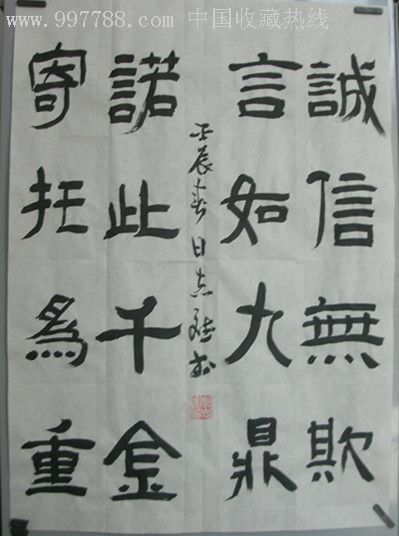 www.997788.com 中国收藏热线
誠信無欺
言如九鼎
壬辰春日
諾此千金
寄托為重